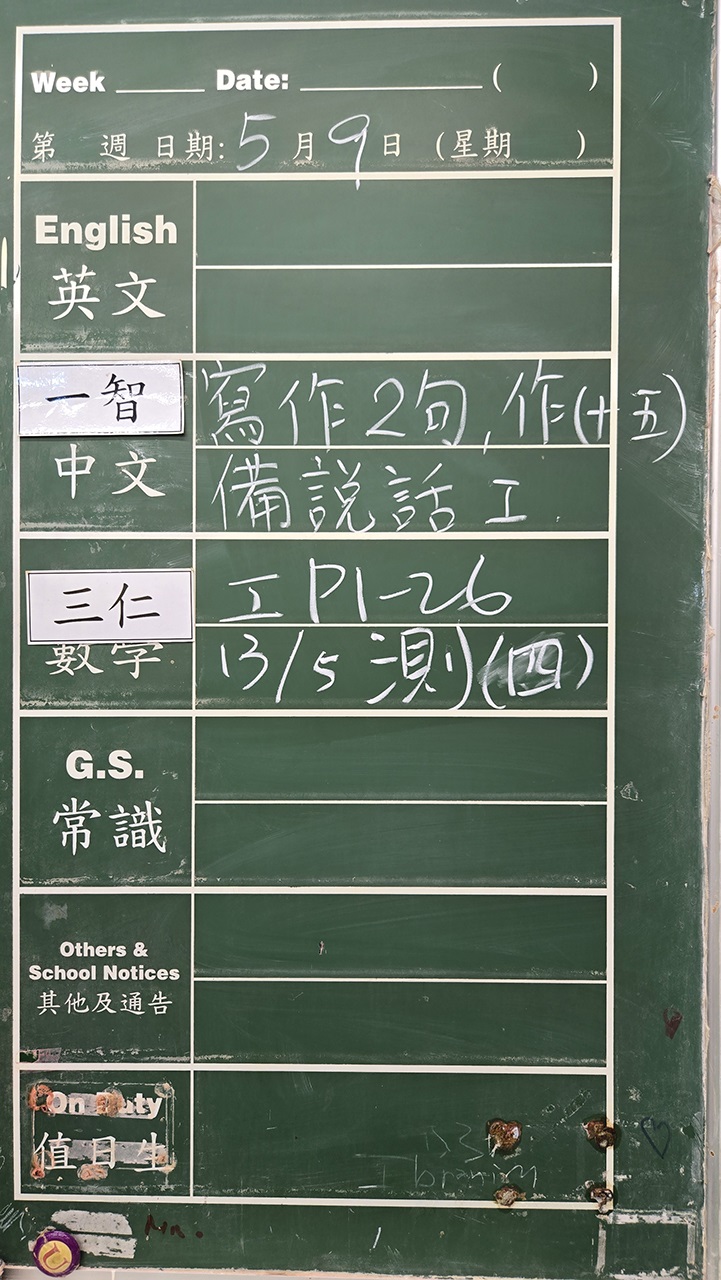 Week ______ Date: ____________ (      )
第 週 日期: 5 月 9 日 (星期 )
English
英文
一智
寫作2句, 作(十五)
中文
備說話工
三仁
工 P1-26
數學
13/5 測(四)
G.S.
常識
Others &
School Notices
其他及通告
On Duty
值日生